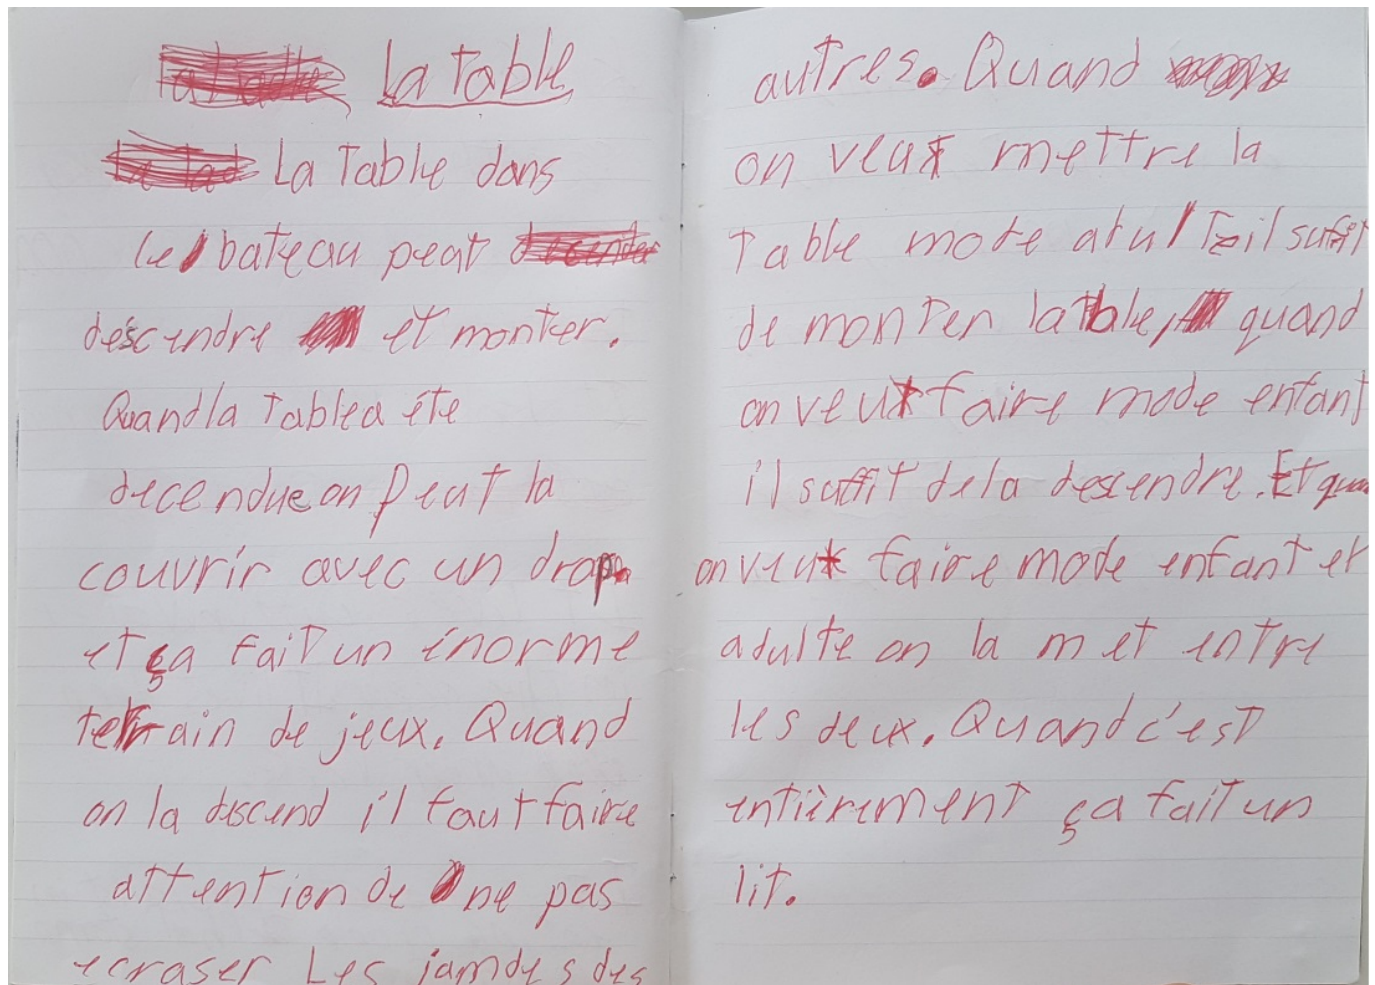 La Table
La Table dans
le bateau peut
déscendre et monter.
Quand la Table a éte
decendue on peut la
couvrir avec un drap
et ça fait un énorme
terrain de jeux. Quand
on la descend il faut faire
attention de ne pas
ecraser Les jamdes des
autres. Quand
on veut mettre la
Table mode adulte il suffit
de monter la table, quand
on veut faire mode enfant
il suffit de la descendre. Et quan
on veut faire mode enfant et
adulte on la met entre
les deux. Quand c'est
entièrement ça fait un
lit.